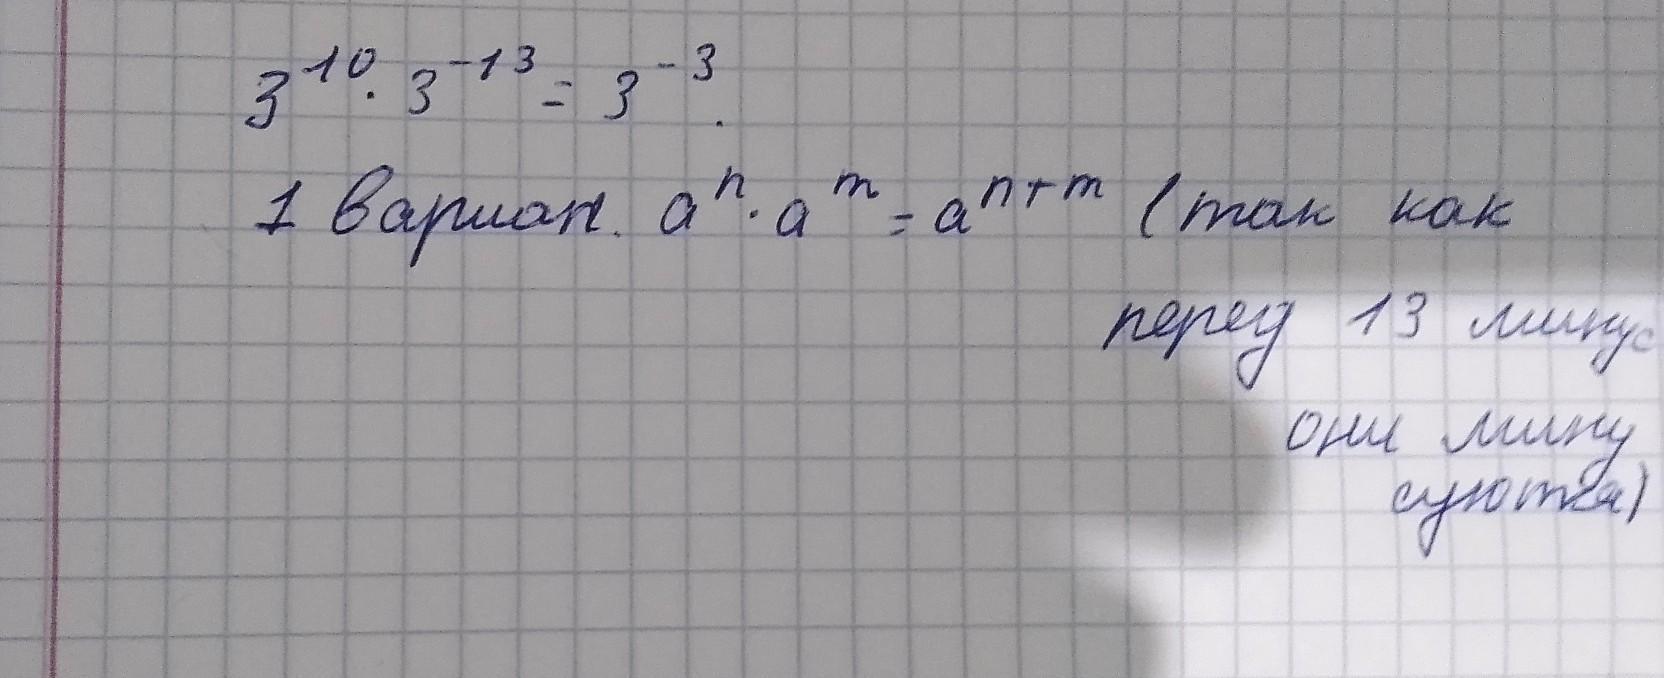 3¹⁰ · 3⁻¹³ = 3⁻³.
1 вариан. aⁿ · aᵐ = aⁿ⁺ᵐ (так как
перед 13 минус
они мину
суются)